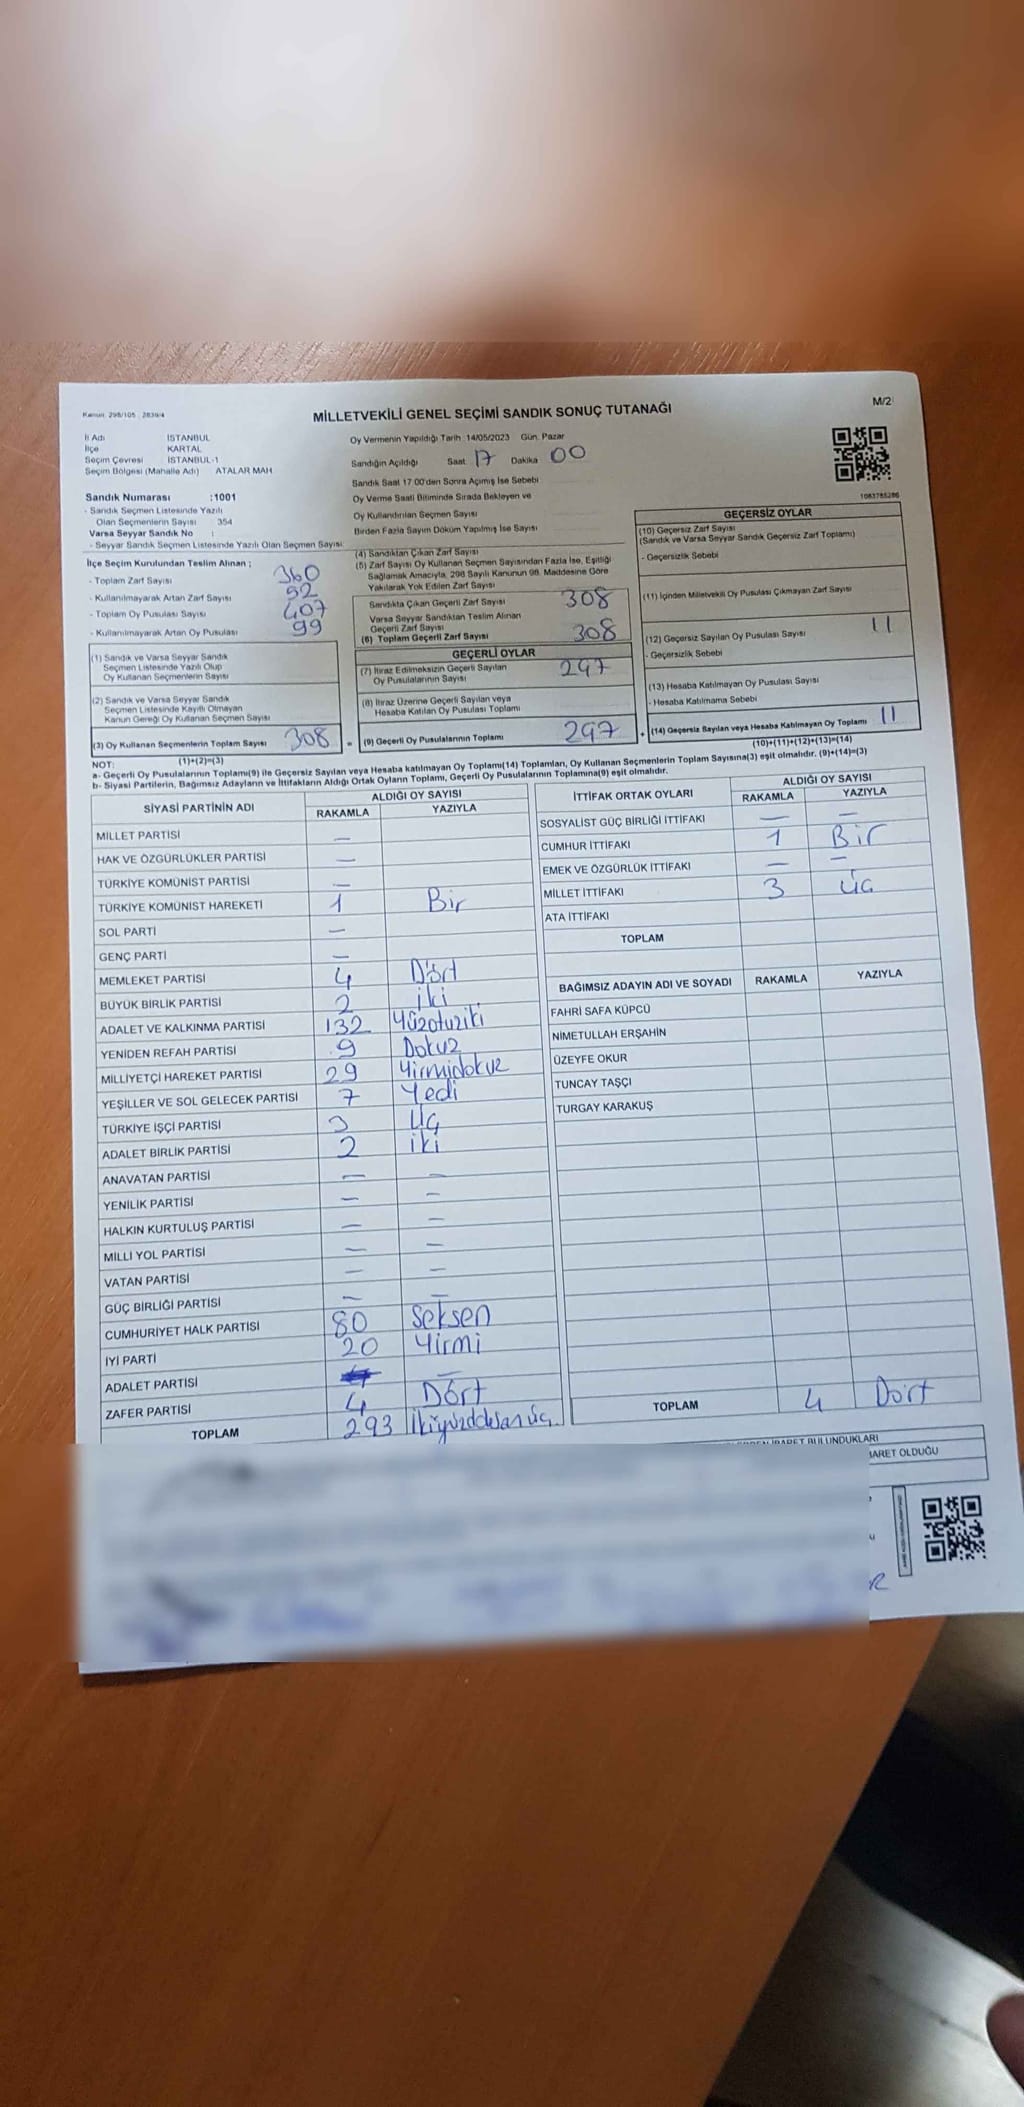 Kanun: 298/105 , 2839/4
M/2
MİLLETVEKİLİ GENEL SEÇİMİ SANDIK SONUÇ TUTANAĞI
İl Adı İSTANBUL
İlçe KARTAL
Seçim Çevresi İSTANBUL-1
Seçim Bölgesi (Mahalle Adı) ATALAR MAH
Sandık Numarası :1001
- Sandık Seçmen Listesinde Yazılı
Olan Seçmenlerin Sayısı 354
Varsa Seyyar Sandık No :
- Seyyar Sandık Seçmen Listesinde Yazılı Olan Seçmen Sayısı:
İlçe Seçim Kurulundan Teslim Alınan ;
- Toplam Zarf Sayısı 360
- Kullanılmayarak Artan Zarf Sayısı 52
- Toplam Oy Pusulası Sayısı 407
- Kullanılmayarak Artan Oy Pusulası 99
(1) Sandık ve Varsa Seyyar Sandık
Seçmen Listesinde Yazılı Olup
Oy Kullanan Seçmenlerin Sayısı
(2) Sandık ve Varsa Seyyar Sandık
Seçmen Listesinde Kayıtlı Olmayan
Kanun Gereği Oy Kullanan Seçmen Sayısı
(3) Oy Kullanan Seçmenlerin Toplam Sayısı 308
(1)+(2)=(3)
Oy Vermenin Yapıldığı Tarih :14/05/2023 Gün: Pazar
Sandığın Açıldığı Saat 17 Dakika 00
Sandık Saat 17:00'den Sonra Açımış İse Sebebi
Oy Verme Saati Bitiminde Sırada Bekleyen ve
Oy Kullandırılan Seçmen Sayısı
Birden Fazla Sayım Döküm Yapılmış İse Sayısı
(4) Sandıktan Çıkan Zarf Sayısı
(5) Zarf Sayısı Oy Kullanan Seçmen Sayısından Fazla İse, Eşitliği
Sağlamak Amacıyla, 298 Sayılı Kanunun 98. Maddesine Göre
Yakılarak Yok Edilen Zarf Sayısı
Sandıkta Çıkan Geçerli Zarf Sayısı 308
Varsa Seyyar Sandıktan Teslim Alınan
Geçerli Zarf Sayısı
(6) Toplam Geçerli Zarf Sayısı 308
GEÇERLİ OYLAR
(7) İtiraz Edilmeksizin Geçerli Sayılan
Oy Pusulalarının Sayısı 297
(8) İtiraz Üzerine Geçerli Sayılan veya
Hesaba Katılan Oy Pusulası Toplamı
= (9) Geçerli Oy Pusulalarının Toplamı 297
1083785286
GEÇERSİZ OYLAR
(10) Geçersiz Zarf Sayısı
(Sandık ve Varsa Seyyar Sandık Geçersiz Zarf Toplamı)
- Geçersizlik Sebebi
(11) İçinden Milletvekili Oy Pusulası Çıkmayan Zarf Sayısı
(12) Geçersiz Sayılan Oy Pusulası Sayısı 11
- Geçersizlik Sebebi
(13) Hesaba Katılmayan Oy Pusulası Sayısı
- Hesaba Katılmama Sebebi
+ (14) Geçersiz Sayılan veya Hesaba Katılmayan Oy Toplamı 11
(10)+(11)+(12)+(13)=(14)
NOT:
a- Geçerli Oy Pusulalarının Toplamı(9) ile Geçersiz Sayılan veya Hesaba katılmayan Oy Toplamı(14) Toplamları, Oy Kullanan Seçmenlerin Toplam Sayısına(3) eşit olmalıdır. (9)+(14)=(3)
b- Siyasi Partilerin, Bağımsız Adayların ve İttifakların Aldığı Ortak Oyların Toplamı, Geçerli Oy Pusulalarının Toplamına(9) eşit olmalıdır.
SİYASİ PARTİNİN ADI ALDIĞI OY SAYISI
RAKAMLA YAZIYLA
MİLLET PARTİSİ —
HAK VE ÖZGÜRLÜKLER PARTİSİ —
TÜRKİYE KOMÜNİST PARTİSİ —
TÜRKİYE KOMÜNİST HAREKETİ 1 Bir
SOL PARTİ —
GENÇ PARTİ —
MEMLEKET PARTİSİ 4 Dört
BÜYÜK BİRLİK PARTİSİ 2 iki
ADALET VE KALKINMA PARTİSİ 132 Yüzotuziki
YENİDEN REFAH PARTİSİ 9 Dokuz
MİLLİYETÇİ HAREKET PARTİSİ 29 Yirmidokuz
YEŞİLLER VE SOL GELECEK PARTİSİ 7 Yedi
TÜRKİYE İŞÇİ PARTİSİ 3 Üç
ADALET BİRLİK PARTİSİ 2 iki
ANAVATAN PARTİSİ — —
YENİLİK PARTİSİ — —
HALKIN KURTULUŞ PARTİSİ — —
MİLLİ YOL PARTİSİ — —
VATAN PARTİSİ — —
GÜÇ BİRLİĞİ PARTİSİ — —
CUMHURİYET HALK PARTİSİ 80 Seksen
İYİ PARTİ 20 Yirmi
ADALET PARTİSİ —
ZAFER PARTİSİ 4 Dört
TOPLAM 293 İkiyüzdoksanüç
İTTİFAK ORTAK OYLARI ALDIĞI OY SAYISI
RAKAMLA YAZIYLA
SOSYALİST GÜÇ BİRLİĞİ İTTİFAKI — —
CUMHUR İTTİFAKI 1 Bir
EMEK VE ÖZGÜRLÜK İTTİFAKI — —
MİLLET İTTİFAKI 3 Üç
ATA İTTİFAKI
TOPLAM
BAĞIMSIZ ADAYIN ADI VE SOYADI RAKAMLA YAZIYLA
FAHRİ SAFA KÜPCÜ
NİMETULLAH ERŞAHİN
ÜZEYFE OKUR
TUNCAY TAŞÇI
TURGAY KARAKUŞ
TOPLAM 4 Dört
İBARET BULUNDUKLARI
BARET OLDUĞU